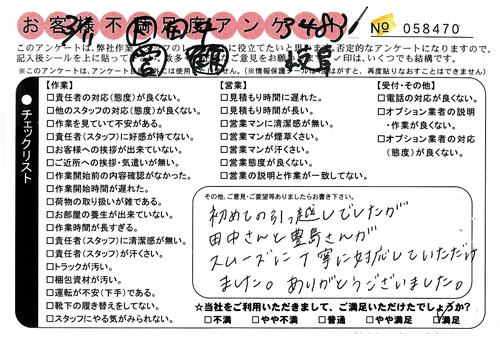 お客様不満足度アンケート
34831
No 058470
営
岐阜
このアンケートは、弊社作業
に役立てたいと
否定的なアンケートになりますので、
記入後シールを上に貼って
ご意見をお願
いつでも結構です。
チェックリスト
【作業】
□責任者の対応(態度)が良くない。
□他のスタッフの対応(態度)が良くない。
□作業を見ていて不安がある。
□責任者(スタッフ)に好感が持てない。
□お客様への挨拶が出来ていない。
□ご近所への挨拶・気遣いが無い。
□作業開始前の内容確認がなかった。
□作業開始時間が遅れた。
□荷物の取り扱いが雑である。
□お部屋の養生が出来ていない。
□作業時間が長すぎる。
□責任者(スタッフ)に清潔感が無い。
□責任者(スタッフ)が汗くさい。
□トラックが汚い。
□梱包資材が汚い。
□運転が不安(下手)である。
□靴下の履き替えをしてない。
□スタッフにやる気がみられない。
【営業】
□見積もり時間に遅れた。
□見積もり時間が長い。
□営業マンに清潔感が無い。
□営業マンが煙草くさい。
□営業マンが汗くさい。
□営業態度が良くない。
□営業の説明と作業が一致してない。
【受付・その他】
□電話の対応が良くない。
□オプション業者の説明
・作業が良くない。
□オプション業者の対応
(態度)が良くない。
その他、ご意見・ご要望等ありましたらお書き下さい。
初めての引っ越しでしたが
田中さんと豊島さんが
スムーズに丁寧に対応していただけ
ました。ありがとうございました。
☆当社をご利用いただきまして、ご満足いただけたでしょうか?
□不満 □やや不満 □普通 □やや満足 □満足